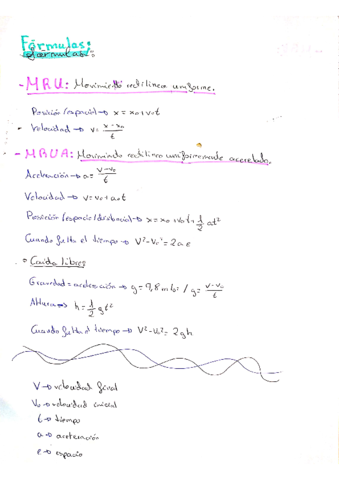 Fórmulas:
- MRU: Movimiento rectilíneo uniforme.
Posición (espacio) → x = x₀ + v·t
• Velocidad → v = (x - x₀)/t
- MRUA: Movimiento rectilíneo uniformemente acelerado.
Aceleración → a = (v - v₀)/t
Velocidad → v = v₀ + a·t
Posición (espacio/distancia) → x = x₀ + v₀ t + 1/2 at²
Cuando falta el tiempo → V² - V₀² = 2 a e
• Caída libre:
Gravedad = aceleración → g = 9,8 m/s² / g = (v - v₀)/t
Altura → h = 1/2 g t²
Cuando falta el tiempo → V² - V₀² = 2gh
V → velocidad final
V₀ → velocidad inicial
t → tiempo
a → aceleración
e → espacio